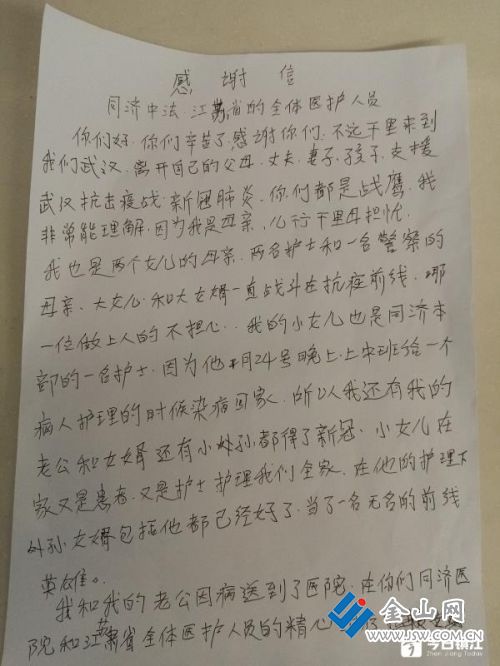 感 谢 信
同济中法.江苏省的全体医护人员
你们好.你们辛苦了.感谢你们.不远千里来到
我们武汉.离开自己的父母.丈夫.妻子.孩子.支援
武汉抗击疫战.新冠肺炎.你们都是战鹰.我
非常能理解.因为我是母亲,儿行千里母担忧.
我也是两个女儿的母亲.两名护士和一名警察的
母亲.大女儿和大女婿一直战斗在抗疫前线.哪
一位做上人的不担心..我的小女儿也是同济本
部的一名护士.因为他 月24号晚上上中班给一个
病人护理的时候染病回家.所以我还有我的
老公和女婿还有小外孙都得了新冠.小女儿在
家又是患者.又是护士护理我们全家.在他的护理下
外孙女婿包括他都已经好了.当了一名无名的前线
英雄。
我和我的老公因病送到了医院.在你们同济医
院和江苏省全体医护人员的精心
金山网
WWW.JSW.COM.CN
今日镇江
Zhen Jiang Today